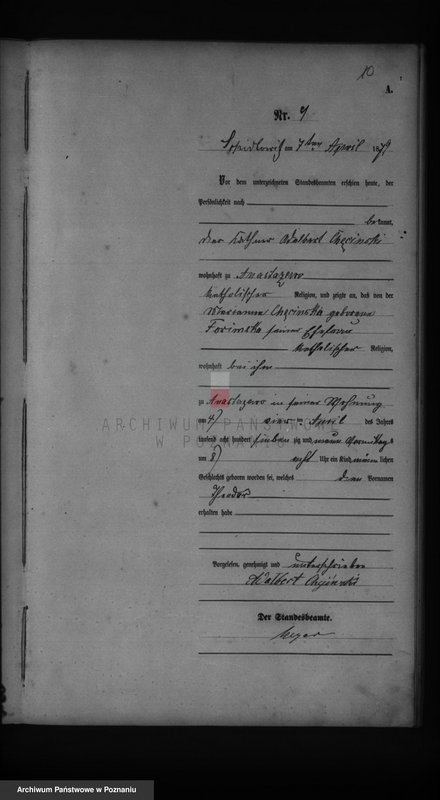 10
A.
Nr. 9
am 7ten April 1879
Vor dem unterzeichneten Standesbeamten erschien heute, der
Persönlichkeit nach
bekannt,
der Käthner Adalbert Chęcinski
wohnhaft zu Anastazewo
katholischer Religion, und zeigte an, daß von der
Marianna Chęcinska geborene
seiner Ehefrau
katholischer Religion,
wohnhaft bei ihm
zu Anastazewo in seiner Wohnung
am 4) vier ten April des Jahres
tausend acht hundert sieben zig und neun Vormittags
um 8) acht Uhr ein Kind männlichen
Geschlechts geboren worden sei, welches den Vornamen
Theodor
erhalten habe
Vorgelesen, genehmigt und unterschrieben
Adalbert Chęcinski
Der Standesbeamte.
ARCHIWUM PAŃSTWOWE
W POZNANIU
Archiwum Państwowe w Poznaniu